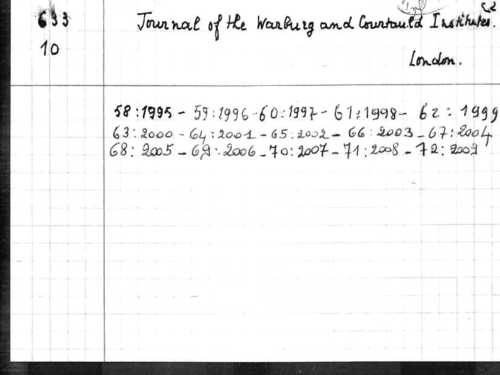 633 Journal of the Warburg and Courtauld Institutes.
10 London.
58:1995 - 59:1996 - 60:1997 - 61:1998 - 62:1999
63:2000 - 64:2001 - 65:2002 - 66:2003 - 67:2004
68:2005 - 69:2006 - 70:2007 - 71:2008 - 72:2009